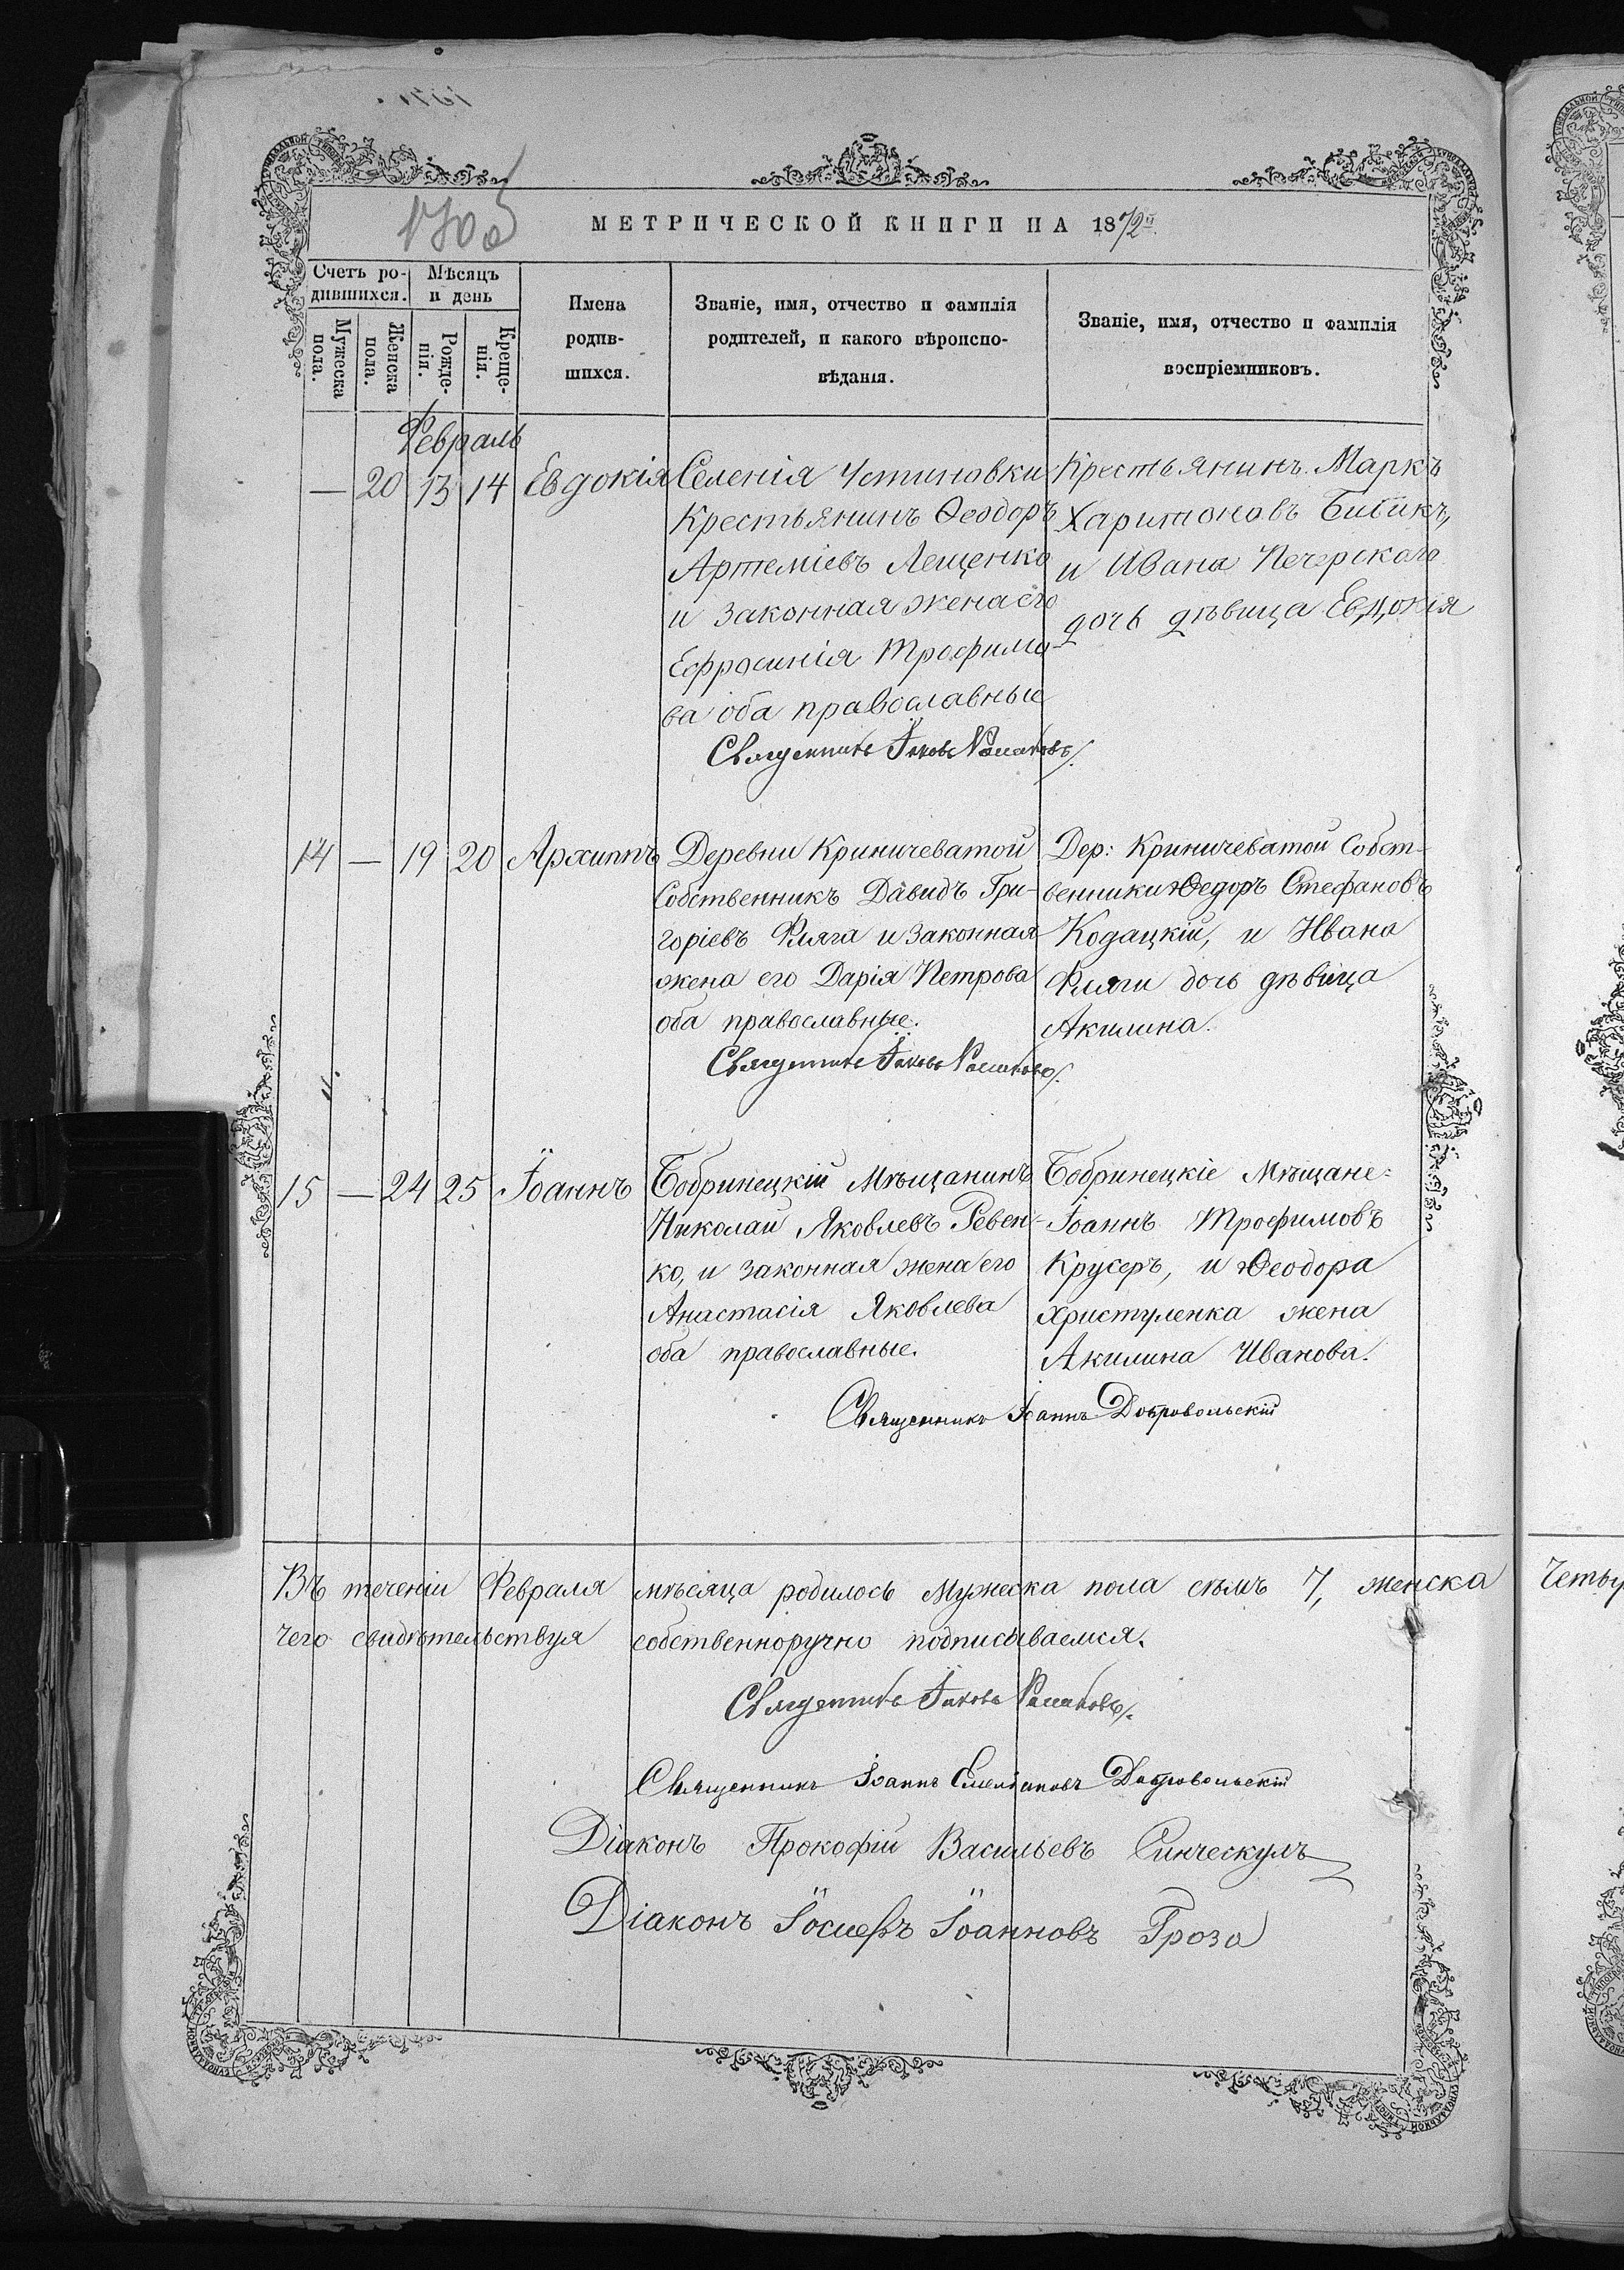 МЕТРИЧЕСКОЙ КНИГИ НА 1872й
Счетъ ро-
дившихся.
Мѣсяцъ
и день
Мужеска
пола.
Женска
пола.
Рожде-
нія.
Креще-
нія.
Имена
родив-
шихся.
Званіе, имя, отчество и фамилія
родителей, и какого вѣроиспо-
вѣданія.
Званіе, имя, отчество и фамилія
воспріемниковъ.
Февраль
— 20 13 14 Евдокія
Селенія Устиновки
Крестьянинъ Ѳеодоръ
Артеміевъ Лещенко
и законная жена его
Ефросинія Трофимо-
ва оба православные
Священникъ Іаковъ
Крестьянинъ Маркъ
Харитоновъ Бибикъ,
и Ивана Печерскаго
дочь дѣвица Евдокія
14 — 19 20 Архиппъ
Деревни Криничеватой
Собственникъ Давидъ Гри-
горіевъ Фляга и законная
жена его Дарія Петрова
оба православные.
Священникъ Іаковъ
Дер: Криничеватой Собст-
венники Ѳедоръ Стефановъ
Кодацкій, и Ивана
Фляги дочь дѣвица
Акилина.
15 — 24 25 Іоаннъ
Бобринецкій Мѣщанинъ
Николай Яковлевъ Ревен-
ко, и законная жена его
Анастасія Яковлева
оба православные.
Бобринецкіе Мѣщане:
Іоаннъ Трофимовъ
Крусеръ, и Ѳеодора
Христуленка жена
Акилина Иванова.
Священникъ Іоаннъ Добровольскій
Въ теченіи Февраля мѣсяца родилось Мужеска пола сѣмъ 7, женска
чего свидѣтельствуя собственноручно подписываемся.
Священникъ Іаковъ
Священникъ Іоаннъ Емеліановъ Добровольскій
Діаконъ Прокофій Васильевъ Синческулъ
Діаконъ Іосифъ Іоанновъ Гроза